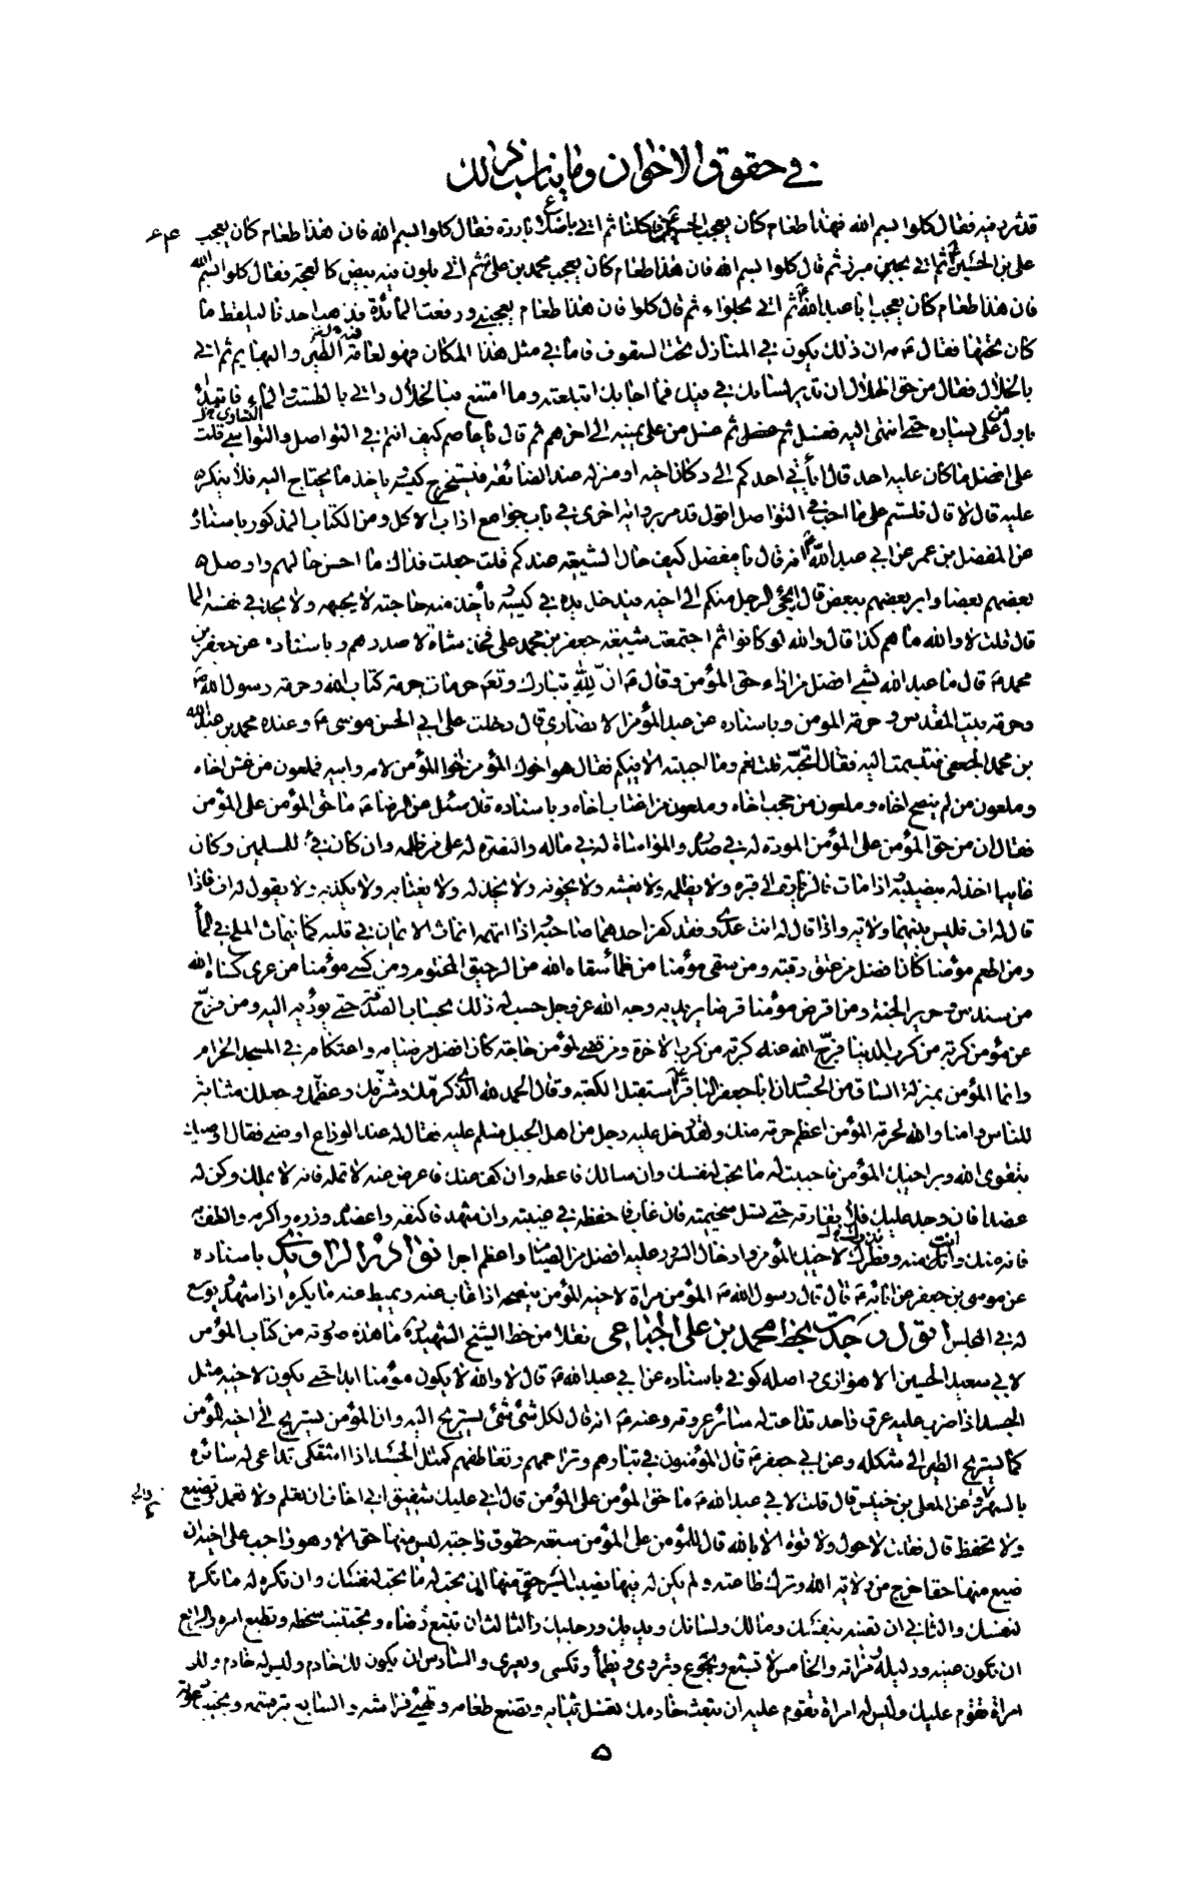 في حقوق الاخوان وما يناسب ذلك
قد ثرد فيه فقال كلوا بسم الله فهذا طعام كان يعجب الحسين فاكلنا ثم اتي باردة فقال كلوا بسم الله فان هذا طعام كان يعجب
علي بن الحسين ثم اتي بجبن مبرز ثم قال كلوا بسم الله فان هذا طعام كان يعجب محمد بن علي ثم اتي بلون فيه بيض كالعجة فقال كلوا بسم الله
فان هذا طعام كان يعجب ابا عبد الله ثم اتي بحلواء ثم قال كلوا فان هذا طعام يعجبني ورفعت المائدة فذهب احدنا ليلقط ما
كان تحتها فقال مه ان ذلك يكون في المنازل تحت السقوف فاما في مثل هذا المكان فهو لعافية الطير والبهايم ثم اتي
بالخلال فقال من حق الخلال ان تدير لسانك في فيك فما اجابك ابتلعته وما امتنع فبالخلال واتي بالطست والماء فابتدأ
باول من على يساره حتى انتهى اليه فغسل ثم غسل من على يمينه الى اخرهم ثم قال يا عاصم كيف انتم في التواصل والتواسي قلت
على افضل ما كان عليه احد قال ايأتي احدكم الى دكان اخيه او منزله عند الضائقة فيستخرج كيسه ياخذ ما يحتاج اليه فلا ينكر
عليه قال لا قال فلستم على ما احب في التواصل اقول قد مر برواية اخرى في باب جوامع اداب الاكل ومن الكتاب المذكور باسناده
عن المفضل بن عمر عن ابي عبد الله انه قال يا مفضل كيف حال الشيعة عندكم قلت جعلت فداك ما احسن حالهم واوصل
بعضهم بعضا وابر بعضهم ببعض قال ايجئ الرجل منكم الى اخيه فيدخل يده في كيسه يأخذ منه حاجته لا يجبهه ولا يجد في نفسه الما
قال قلت لا والله ما هم كذا قال والله لو كانوا ثم اجتمعت شيعة جعفر بن محمد على فخذ شاة لاصدرهم وباسناده عن جعفر بن
محمد قال ما عبد الله بشئ افضل من اداء حق المؤمن وقال ان لله تبارك وتعم حرمات حرمة كتاب الله وحرمة رسول الله
وحرمة بيت المقدس وحرمة المومن وباسناده عن عبد المؤمن الانصاري قال دخلت على ابي الحسن موسى وعنده محمد بن عبد الله
بن محمد الجعفي فتبسمت اليه فقال اتحبه قلت نعم وما احببته الا فيكم فقال هو اخوك المؤمن اخو المؤمن لامه وابيه فملعون من غش اخاه
وملعون من لم ينصح اخاه وملعون من حجب اخاه وملعون من اغتاب اخاه وباسناده قال سئل عن الرضا ما حق المؤمن على المؤمن
فقال ان من حق المؤمن على المؤمن المودة له في صدره والمواساة له في ماله والنصرة له على من ظلمه وان كان فيء للمسلمين وكان
غايبا اخذ له بنصيبه اذا مات فالزيارة الى قبره ولا يظلمه ولا يغشه ولا يخونه ولا يخذله ولا يغتابه ولا يكذبه ولا يقول له اف فاذا
قال له اف فليس بينهما ولاية واذا قال له انت عدوي فقد كفر احدهما صاحبه واذا اتهمه انماث الايمان في قلبه كما ينماث الملح في الماء
ومن اطعم مؤمنا كان افضل من عتق رقبة ومن سقى مؤمنا من ظما سقاه الله من الرحيق المختوم ومن كسى مؤمنا من عرى كساه الله
من سندس وحرير الجنة ومن اقرض مؤمنا قرضا يريد به وجه الله عز وجل حسب له ذلك بحساب الصدقة حتى يؤديه اليه ومن فرج
عن مؤمن كربة من كرب الدنيا فرج الله عنه كربة من كرب الاخرة ومن قضى لمؤمن حاجة كان افضل من صيامه واعتكافه في المسجد الحرام
وانما المؤمن بمنزلة الساق من الجسد وان ابا جعفر الباقر استقبل الكعبة وقال الحمد لله الذي كرمك وشرفك وعظمك وجعلك مثابة
للناس وامنا والله لحرمة المؤمن اعظم حرمة منك ولقد دخل عليه رجل من اهل الجبل فسلم عليه فقال له عند الوداع اوصني فقال اوصيك
بتقوى الله وبر اخيك المؤمن فاحببت له ما تحب لنفسك وان سالك فاعطه وان كف عنك فاعرض عليه لا تمله فانه لا يملك وكن له
عضدا فان وجد عليك فلا تفارقه حتى تسل سخيمته فان غاب فاحفظه في غيبته وان شهد فاكنفه واعضده وزره واكرمه والطف به
فانه منك وانت منه وفطرك لاخيك المؤمن وادخال السرور عليه افضل من الصيام واعظم اجرا نوادر الراوندي باسناده
عن موسى بن جعفر عن ابائه قال قال رسول الله المؤمن مراة لاخيه المؤمن ينصحه اذا غاب عنه ويميط عنه ما يكره اذا شهد ويوسع
له في المجلس اقول وجدت بخط محمد بن علي الجباعي نقلا من خط الشيخ الشهيد ما هذه صورته من كتاب المؤمن
لابي سعيد الحسين الاهوازي واصله كوفي باسناده عن ابي عبد الله قال لا والله لا يكون مؤمنا ابدا حتى يكون لاخيه مثل
الجسد اذا ضرب عليه عرق واحد تداعت له سائر عروقه وعنه انه قال لكل شئ شئ يستريح اليه وان المؤمن يستريح الى اخيه المؤمن
كما يستريح الطير الى شكله وعن ابي جعفر قال المؤمنون في تبارهم وتراحمهم وتعاطفهم كمثل الجسد اذا اشتكى تداعى له سائره
بالسهر وعن المعلى بن خنيس قال قلت لابي عبد الله ما حق المؤمن على المؤمن قال اني عليك شفيق اني اخاف ان تعلم ولا تعمل وتضيع
ولا تحفظ قال فقلت لا حول ولا قوة الا بالله قال للمؤمن على المؤمن سبعة حقوق واجبة ليس منها حق الا وهو واجب على اخيه ان
ضيع منها حقا خرج من ولاية الله وترك طاعته ولم يكن له فيها نصيب ايسر حق منها ان تحب له ما تحب لنفسك وان تكره له ما تكره
لنفسك والثاني ان تعينه بنفسك ومالك ولسانك ويديك ورجليك والثالث ان تتبع رضاه وتجتنب سخطه وتطيع امره والرابع
ان تكون عينه ودليله ومراته والخامس لا تشبع ويجوع وتروى ويظمأ وتكسى ويعرى والسادس ان يكون لك خادم وليس له خادم ولك
امراة تقوم عليك وليس له امراة تقوم عليه ان تبعث خادمك تغسل ثيابه وتصنع طعامه وتهيئ فراشه والسابع تبر قسمه وتجيب دعوته